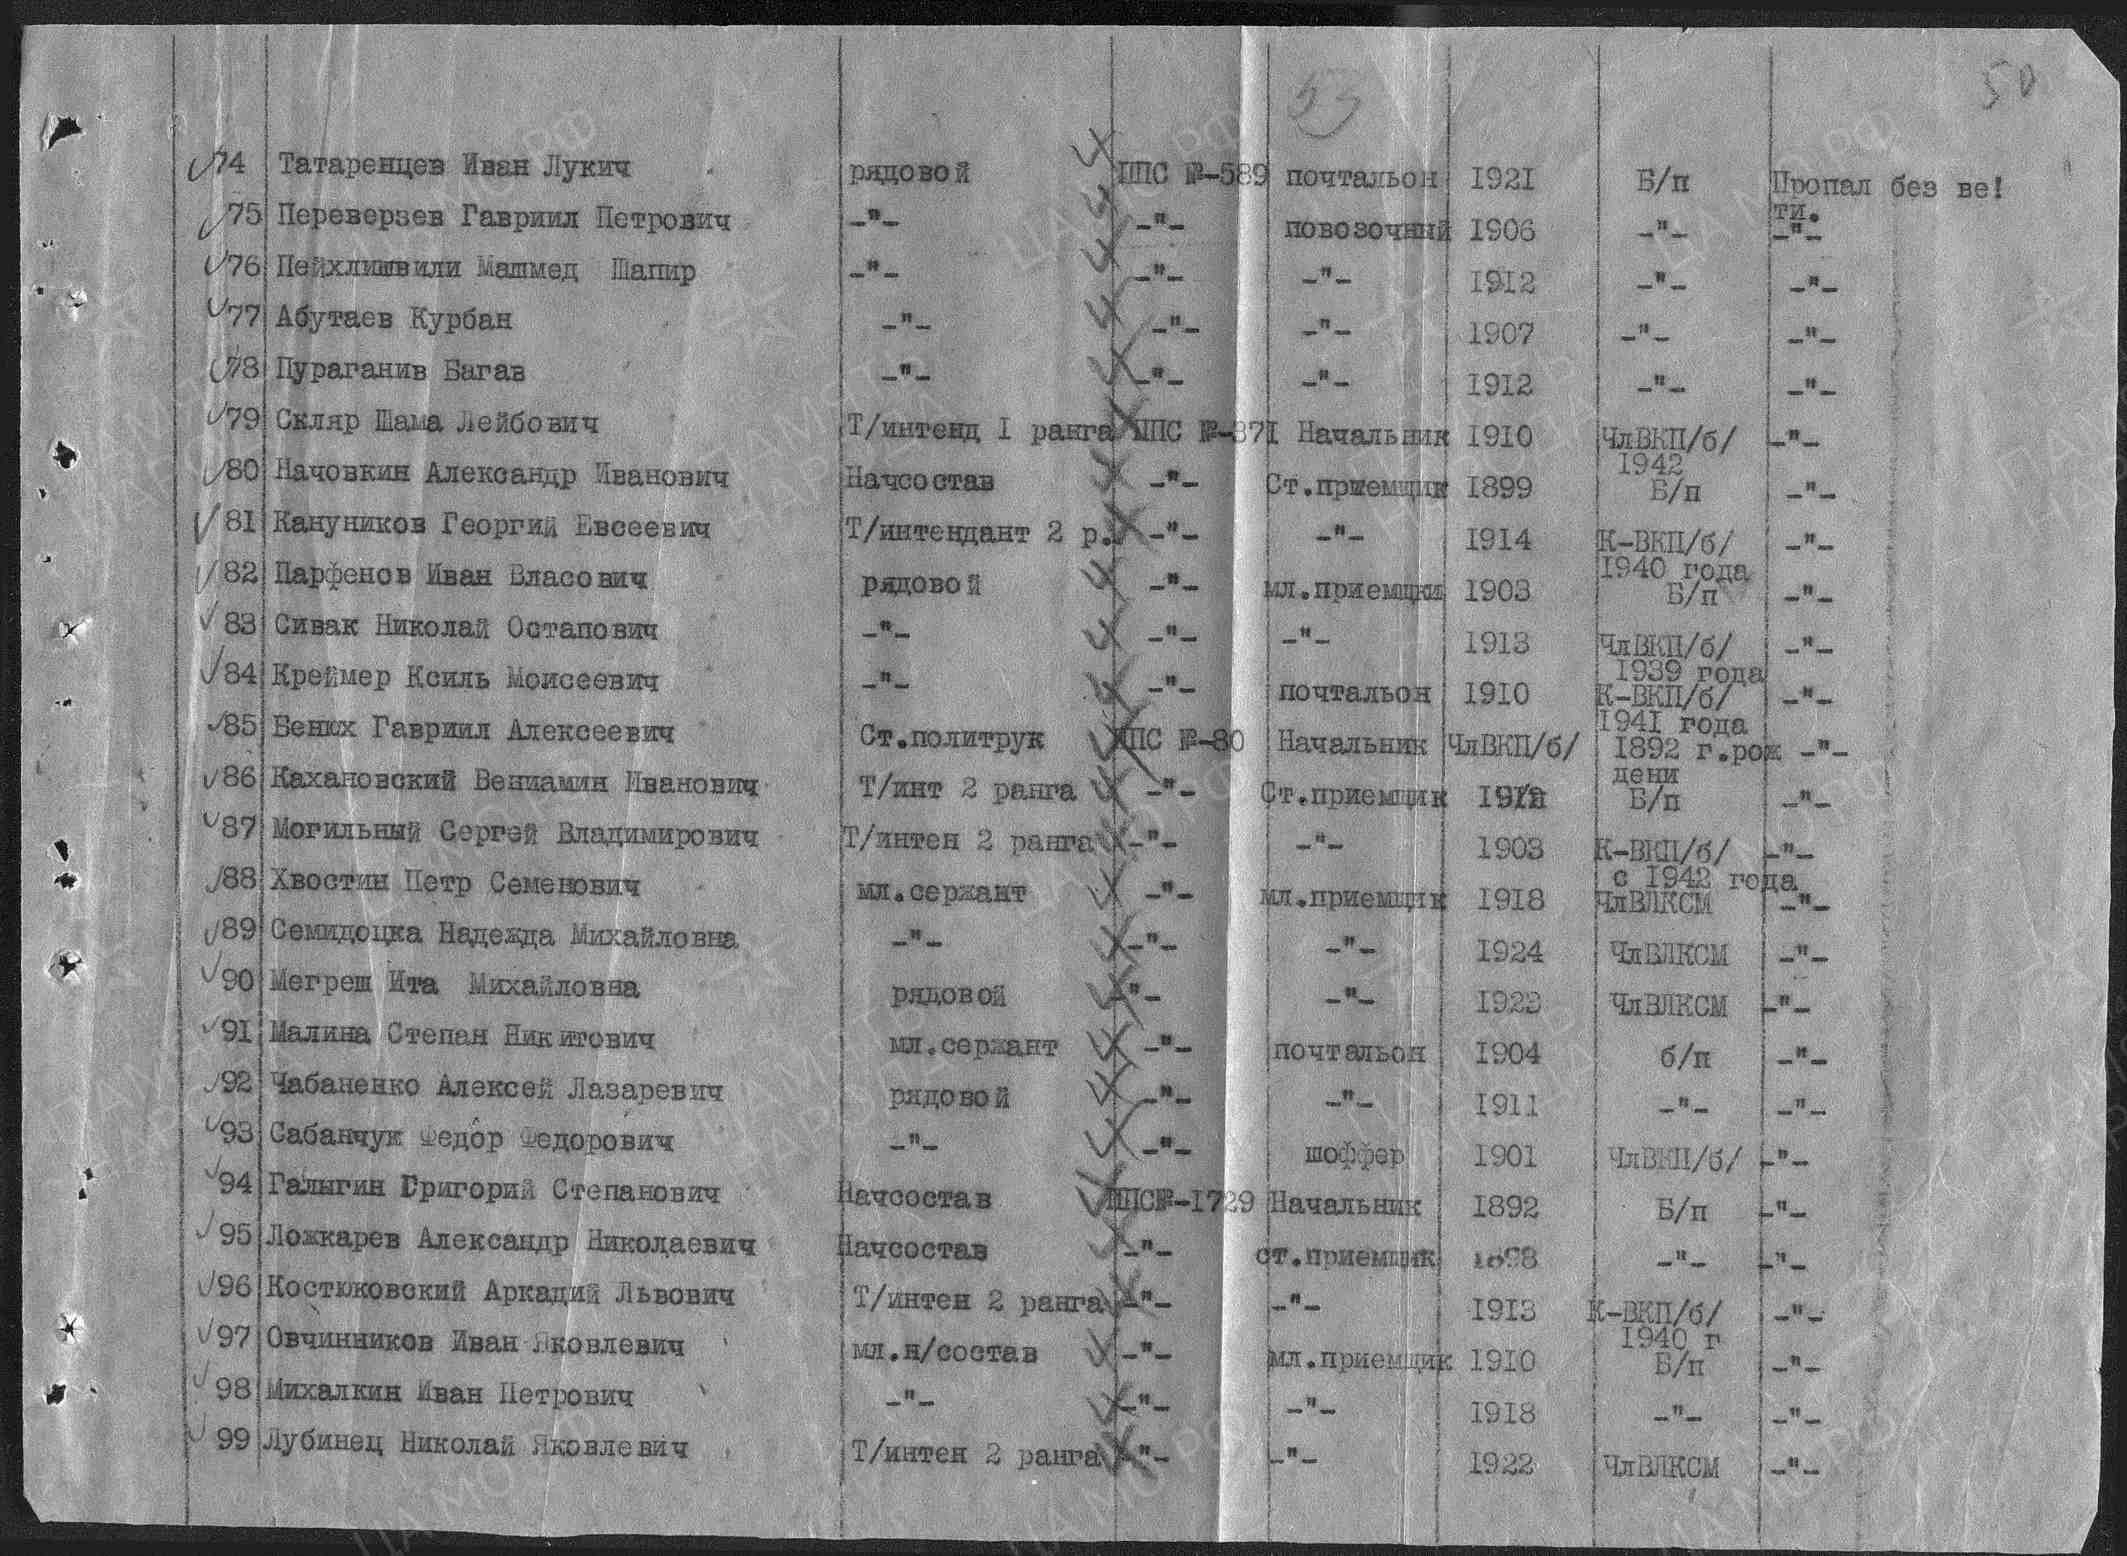 53
50
74 Татаренцев Иван Лукич рядовой ППС №-589 почтальон 1921 Б/п Пропал без ве!
ти.
75 Переверзев Гавриил Петрович -"- -"- повозочный 1906 -"- -"-
76 Пейхлишвили Машмед Шапир -"- -"- -"- 1912 -"- -"-
77 Абутаев Курбан -"- -"- -"- 1907 -"- -"-
78 Пураганив Багав -"- -"- -"- 1912 -"- -"-
79 Скляр Шама Лейбович Т/интенд I ранга ППС №-371 Начальник 1910 ЧлВКП/б/ -"-
1942
80 Начовкин Александр Иванович Начсостав -"- Ст.приемщик 1899 Б/п -"-
81 Кануников Георгий Евсеевич Т/интендант 2 р. -"- -"- 1914 К-ВКП/б/ -"-
1940 года
82 Парфенов Иван Власович рядовой -"- мл.приемщки 1903 Б/п -"-
83 Сивак Николай Остапович -"- -"- -"- 1913 ЧлВКП/б/ -"-
1939 года
84 Креймер Ксиль Моисеевич -"- -"- почтальон 1910 К-ВКП/б/ -"-
1941 года
85 Бенюх Гавриил Алексеевич Ст.политрук ППС №-80 Начальник ЧлВКП/б/ 1892 г.рож -"-
дени
86 Кахановский Вениамин Иванович Т/инт 2 ранга -"- Ст.приемщик Б/п -"-
87 Могильный Сергей Владимирович Т/интен 2 ранга -"- -"- 1903 К-ВКП/б/ -"-
с 1942 года
88 Хвостин Петр Семенович мл.сержант -"- мл.приемщик 1918 ЧлВЛКСМ -"-
89 Семидоцка Надежда Михайловна -"- -"- -"- 1924 ЧлВЛКСМ -"-
90 Мегреш Ита Михайловна рядовой -"- -"- 1923 ЧлВЛКСМ -"-
91 Малина Степан Никитович мл.сержант -"- почтальон 1904 б/п -"-
92 Чабаненко Алексей Лазаревич рядовой -"- -"- 1911 -"- -"-
93 Сабанчук Федор Федорович -"- -"- шоффер 1901 ЧлВКП/б/ -"-
94 Галыгин Григорий Степанович Начсостав ППС№-1729 Начальник 1892 Б/п -"-
95 Ложкарев Александр Николаевич Начсостав -"- ст.приемщик 1898 -"- -"-
96 Костюковский Аркадий Львович Т/интен 2 ранга -"- -"- 1913 К-ВКП/б/ -"-
1940 г
97 Овчинников Иван Яковлевич мл.н/состав -"- мл.приемщик 1910 Б/п -"-
98 Михалкин Иван Петрович -"- -"- -"- 1918 -"- -"-
99 Лубинец Николай Яковлевич Т/интен 2 ранга -"- -"- 1922 ЧлВЛКСМ -"-